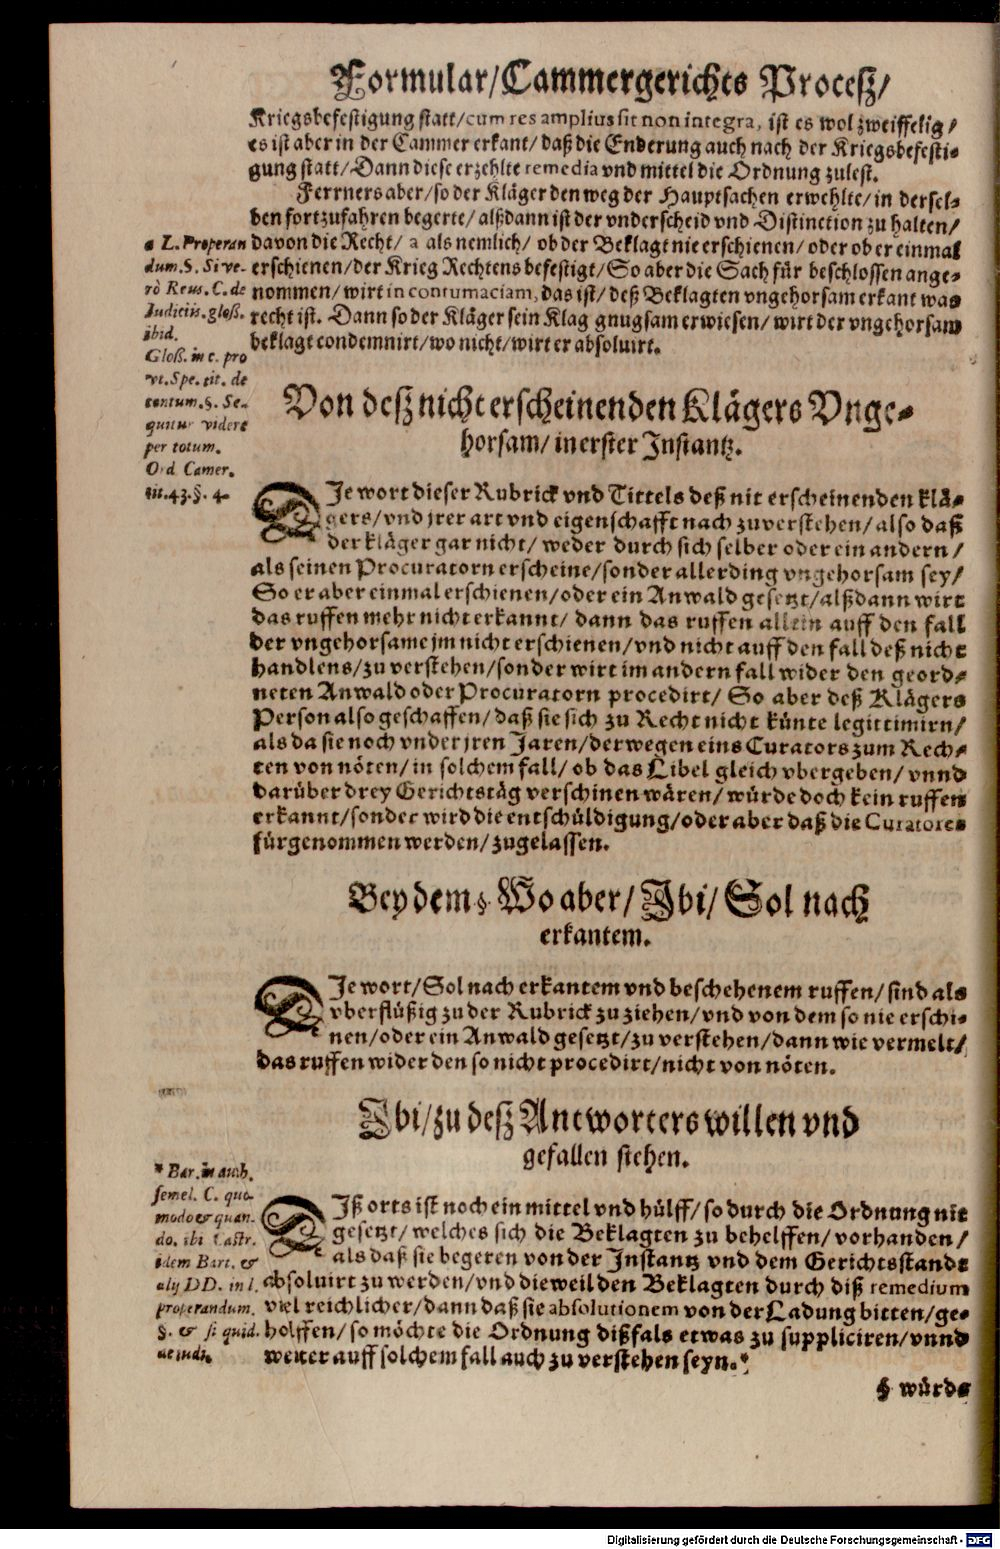 Formular/Cammergerichts Proceß/
Kriegsbefestigung statt/cum res amplius sit non integra, ist es wol zweiffelig/
es ist aber in der Cammer erkant/daß die Enderung auch nach der Kriegsbefesti-
gung statt/Dann diese erzehlte remedia vnd mittel die Ordnung zulest.
Ferrners aber/so der Kläger den weg der Hauptsachen erwehlte/in dersel-
ben fortzufahren begerte/alßdann ist der vnderscheid vnd Distinction zu halten/
davon die Recht/ a als nemlich/ ob der Beklagt nie erschienen/oder ob er einmal
erschienen/der Krieg Rechtens befestigt/So aber die Sach für beschlossen ange-
nommen/wirt in contumaciam, das ist/ deß Beklagten vngehorsam erkant was
recht ist. Dann so der Kläger sein Klag gnugsam erwiesen/wirt der vngehorsam
beklagt condemnirt/wo nicht/wirt er absoluirt.
a L. Properan
dum. §. Si ve-
rò Reus. C. de
Iudiciis. gloß.
ibid.
Gloß. in c. pro
vt. Spe. tit. de
contum. §. Se-
quitur videre
per totum.
Ord. Camer.
tit. 43. §. 4.
Von deß nicht erscheinenden Klägers Vnge-
horsam/ in erster Instantz.
DJe wort dieser Rubrick vnd Tittels deß nit erscheinenden klä-
gers/vnd jrer art vnd eigenschafft nach zuverstehen/also daß
der kläger gar nicht/ weder durch sich selber oder ein andern/
als seinen Procuratorn erscheine/sonder allerding vngehorsam sey/
So er aber einmal erschienen/oder ein Anwald gesetzt/alßdann wirt
das ruffen mehr nicht erkannt/ dann das ruffen allein auff den fall
der vngehorsame jm nicht erschienen/vnd nicht auff den fall deß nicht
handlens/zu verstehen/sonder wirt im andern fall wider den geord-
neten Anwald oder Procuratorn procedirt/ So aber deß Klägers
Person also geschaffen/daß sie sich zu Recht nicht künte legittimirn/
als da sie noch vnder jren Jaren/derwegen eins Curators zum Rech-
ten von nöten/in solchem fall/ ob das Libel gleich vbergeben/ vnnd
darüber drey Gerichtstäg verschinen wären/würde doch kein ruffen
erkannt/sonder wird die entschüldigung/oder aber daß die Curatores
fürgenommen werden/zugelassen.
Bey dem § Wo aber/ Ibi/ Sol nach
erkantem.
DJe wort/Sol nach erkantem vnd beschehenem ruffen/sind als
vberflüßig zu der Rubrick zu ziehen/vnd von dem so nie erschi-
nen/oder ein Anwald gesetzt/zu verstehen/dann wie vermelt/
das ruffen wider den so nicht procedirt/nicht von nöten.
Ibi/zu deß Antworters willen vnd
gefallen stehen.
DIß orts ist noch ein mittel vnd hülff/so durch die Ordnung nit
gesetzt/ welches sich die Beklagten zu behelffen/ vorhanden/
als daß sie begeren von der Instantz vnd dem Gerichtsstande
absoluirt zu werden/vnd dieweil den Beklagten durch diß remedium
viel reichlicher/dann daß sie absolutionem von der Ladung bitten/ge-
holffen/so möchte die Ordnung dißfals etwas zu suppliciren/vnnd
weiter auff solchem fall auch zu verstehen seyn.*
* Bar. in auth.
semel. C. quo-
modo & quan-
do. ibi Castr.
idem Bart. &
alij DD. in l.
properandum.
§. & si quid.
de iudi.
§ würde
Digitalisierung gefördert durch die Deutsche Forschungsgemeinschaft - DFG